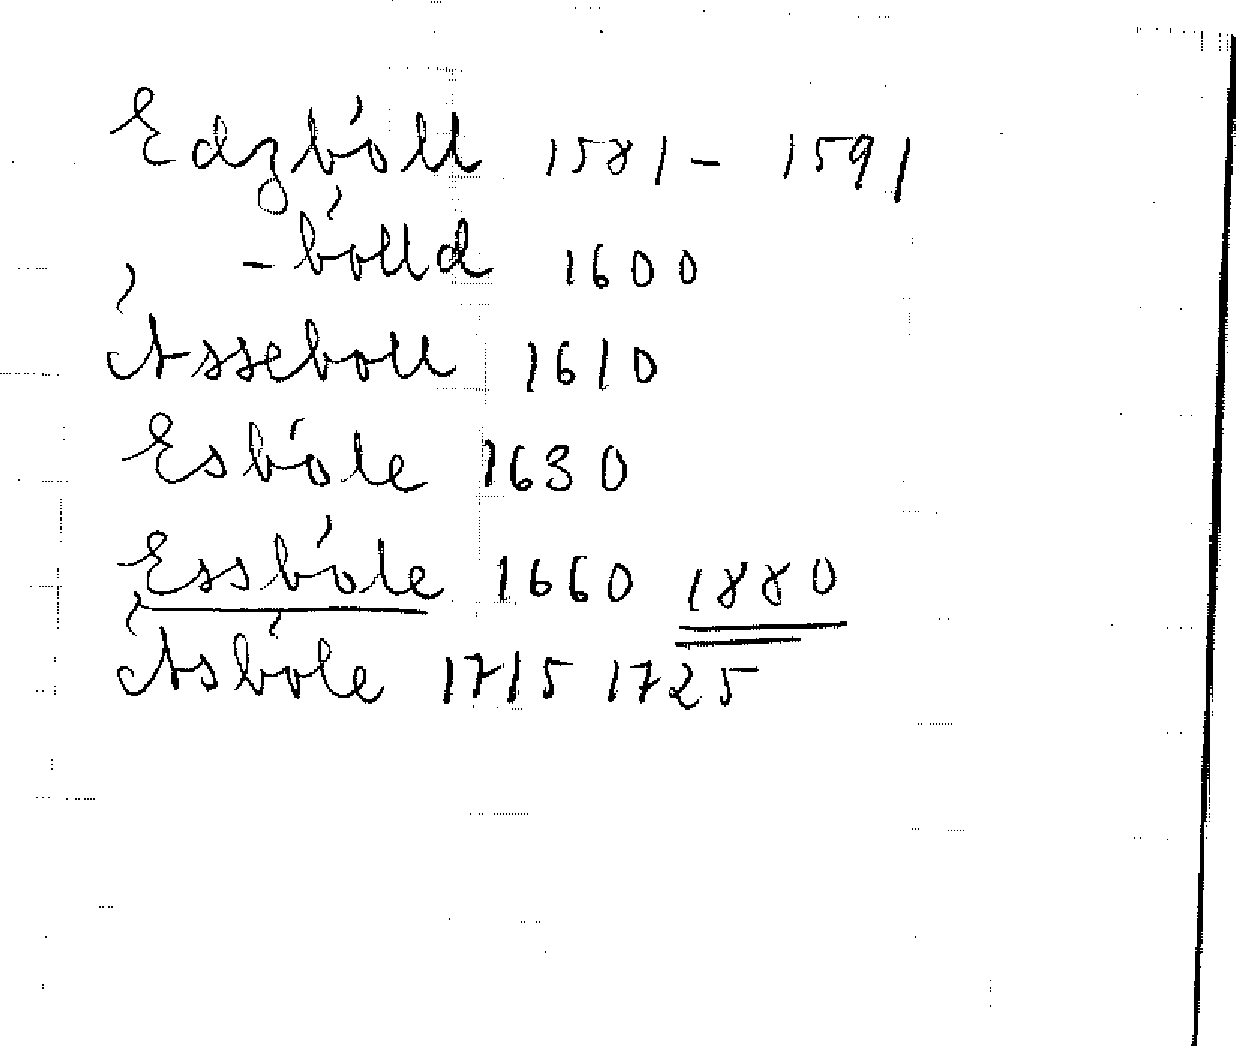 Edzböll 1581 - 1591
- bölld 1600
Ässeboll 1610
Esböle 1630
Essböle 1660 1880
Äsböle 1715 1725